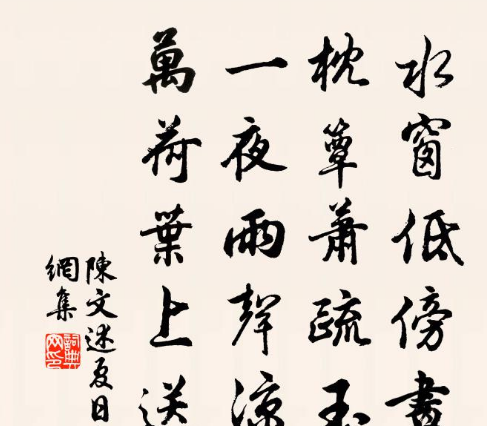 水窗低傍畫
枕簟蕭疏玉
一夜雨聲涼
萬荷葉上送
陳文述夏日
網集